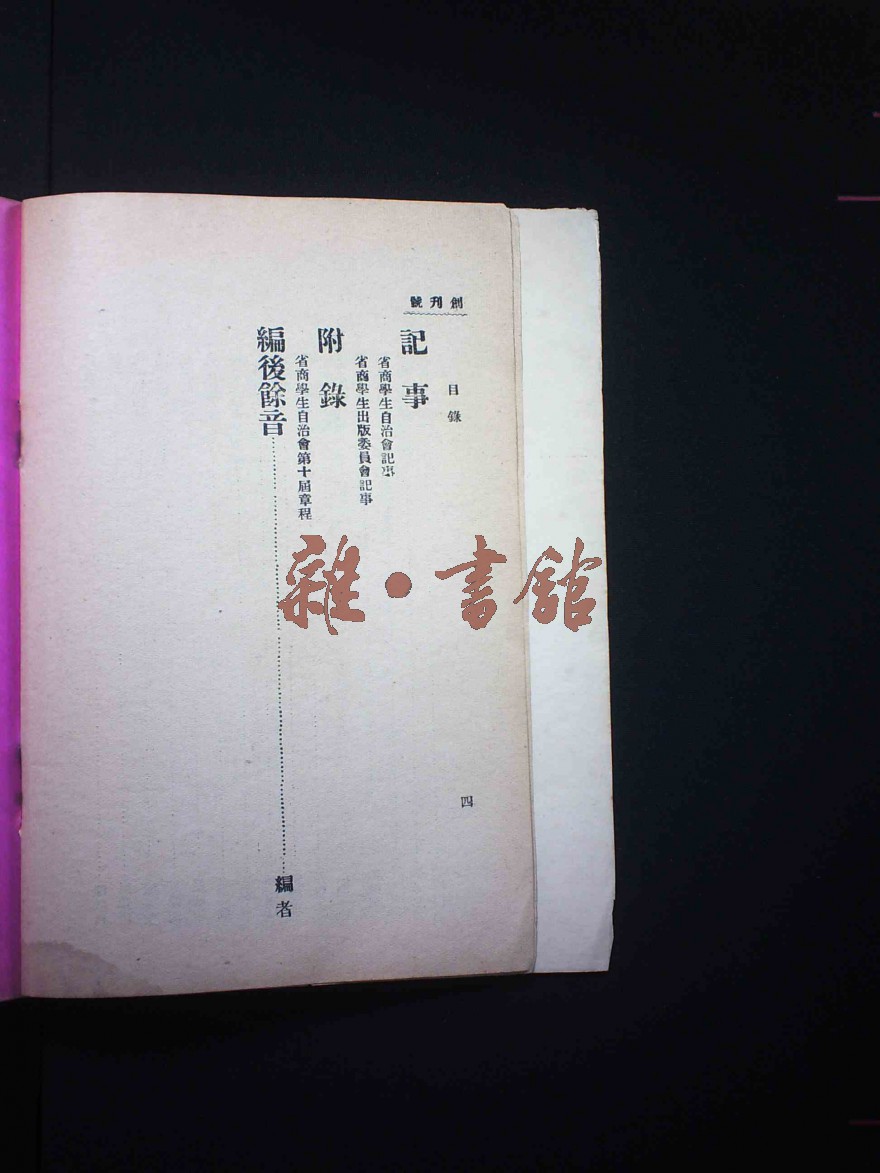 創刊號
目錄
四
記事
省商學生自治會記事
省商學生出版委員會記事
附錄
省商學生自治會第十屆章程
編後餘音……編者
雜·書館